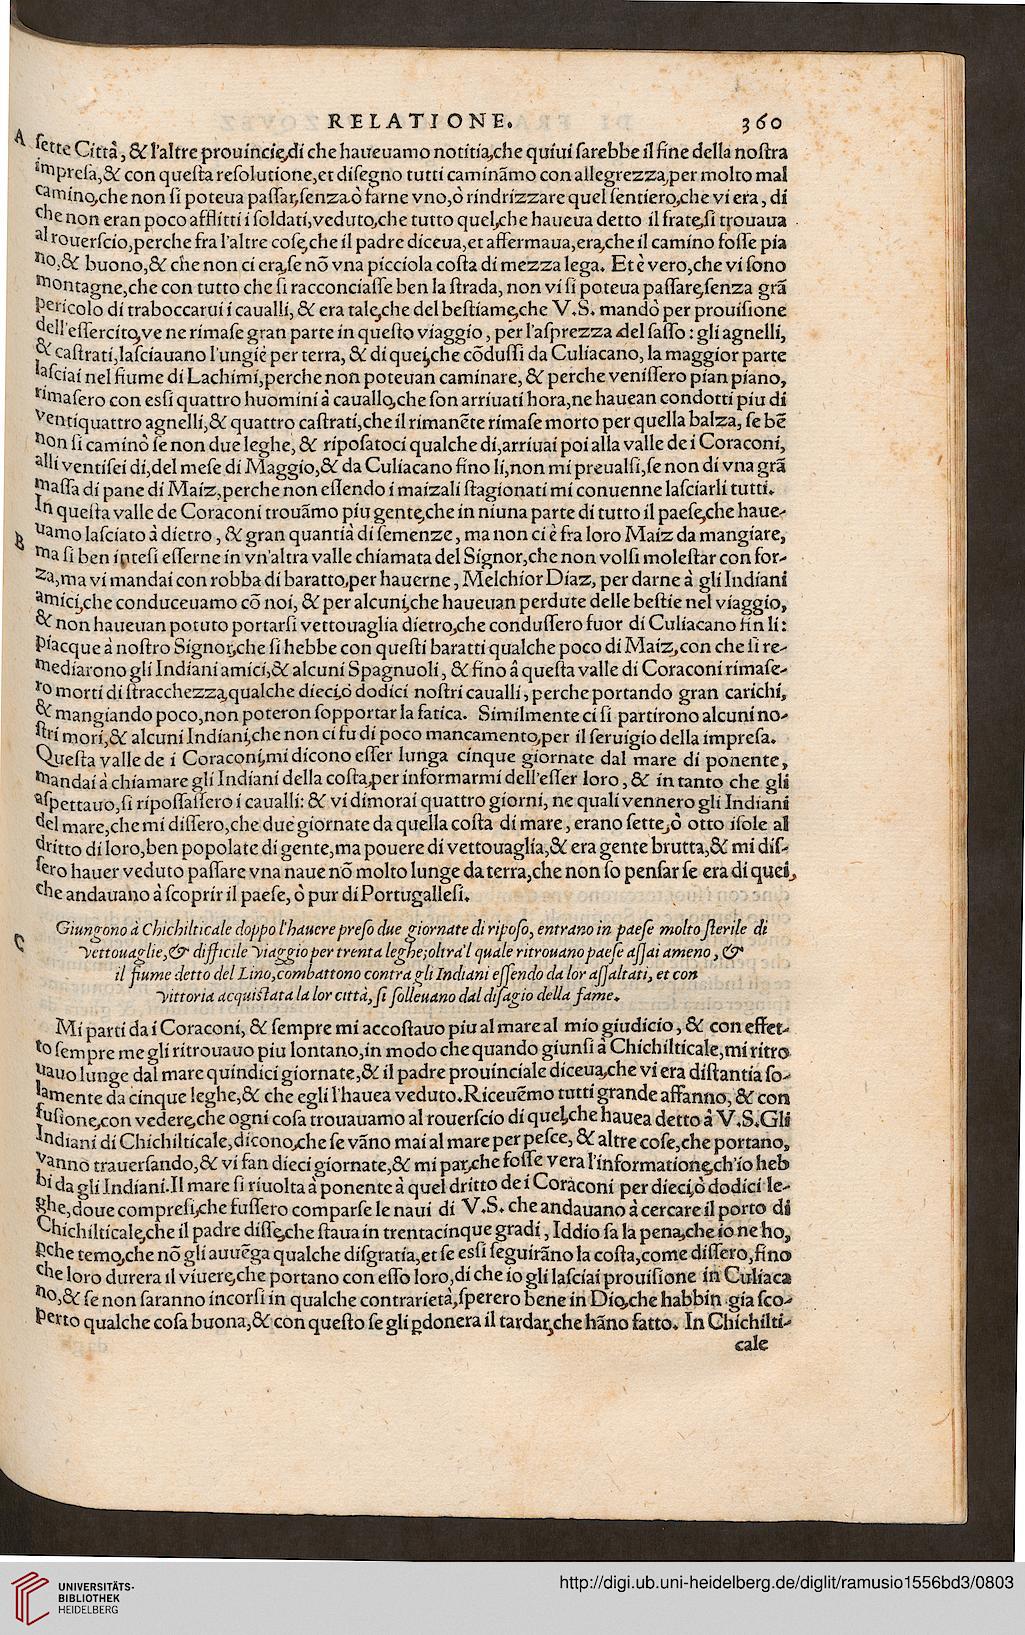 RELATIONE. 360
A ſette Città, & l'altre prouincie, di che haueuamo notitia, che quiui ſarebbe il fine della noſtra
impreſa, & con queſta reſolutione, et diſegno tutti caminãmo con allegrezza, per molto mal
camino, che non ſi poteua paſſar, ſenza ò farne vno, ò rindrizzare quel ſentiero, che vi era, di
che non eran poco afflitti i ſoldati, veduto, che tutto quel, che haueua detto il frate, ſi trouaua
al rouerſcio, perche fra l'altre coſe, che il padre diceua, et affermaua, era, che il camino foſſe pia
no, & buono, & che non ci era, ſe nõ vna picciola coſta di mezza lega. Et è vero, che vi ſono
montagne, che con tutto che ſi racconciaſſe ben la ſtrada, non vi ſi poteua paſſare, ſenza grã
pericolo di traboccarui i caualli, & era tale, che del beſtiame, che V.S. mandò per prouiſione
dell'eſſercito, ve ne rimaſe gran parte in queſto viaggio, per l'aſprezza del ſaſſo: gli agnelli,
& caſtrati, laſciauano l'ungie per terra, & di quei, che cõduſſi da Culiacano, la maggior parte
laſciai nel fiume di Lachimi, perche non poteuan caminare, & perche veniſſero pian piano,
rimaſero con eſſi quattro huomini à cauallo, che ſon arriuati hora, ne hauean condotti piu di
ventiquattro agnelli, & quattro caſtrati, che il rimanẽte rimaſe morto per quella balza, ſe bẽ
non ſi caminò ſe non due leghe, & ripoſatoci qualche di, arriuai poi alla valle de i Coraconi,
alli ventiſei di, del meſe di Maggio, & da Culiacano fino li, non mi preualſi, ſe non di vna grã
maſſa di pane di Maiz, perche non eſſendo i maizali ſtagionati mi conuenne laſciarli tutti.
In queſta valle de Coraconi trouãmo piu gente, che in niuna parte di tutto il paeſe, che haue-
B uamo laſciato à dietro, & gran quantià di ſemenze, ma non ci è fra loro Maiz da mangiare,
ma ſi ben inteſi eſſerne in vn'altra valle chiamata del Signor, che non volſi moleſtar con for-
za, ma vi mandai con robba di baratto, per hauerne, Melchior Diaz, per darne à gli Indiani
amici, che conduceuamo cõ noi, & per alcuni, che haueuan perdute delle beſtie nel viaggio,
& non haueuan potuto portarſi vettouaglia dietro, che conduſſero fuor di Culiacano fin li:
piacque à noſtro Signor, che ſi hebbe con queſti baratti qualche poco di Maiz, con che ſi re-
mediarono gli Indiani amici, & alcuni Spagnuoli, & fino â queſta valle di Coraconi rimaſe-
ro morti di ſtracchezza, qualche dieci, ò dodici noſtri caualli, perche portando gran carichi,
& mangiando poco, non poteron ſopportar la fatica. Similmente ci ſi partirono alcuni no-
ſtri mori, & alcuni Indiani, che non ci fu di poco mancamento, per il ſeruigio della impreſa.
Queſta valle de i Coraconi, mi dicono eſſer lunga cinque giornate dal mare di ponente,
mandai à chiamare gli Indiani della coſta, per informarmi dell'eſſer loro, & in tanto che gli
aſpettauo, ſi ripoſſaſſero i caualli: & vi dimorai quattro giorni, ne quali vennero gli Indiani
del mare, che mi diſſero, che due giornate da quella coſta di mare, erano ſette, ò otto iſole al
dritto di loro, ben popolate di gente, ma pouere di vettouaglia, & era gente brutta, & mi diſ-
ſero hauer veduto paſſare vna naue nõ molto lunge da terra, che non ſo penſar ſe era di quei,
che andauano à ſcoprir il paeſe, ò pur di Portugalleſi.
Giungono à Chichilticale doppo l'hauere preſo due giornate di ripoſo, entrano in paeſe molto ſterile di
C vettouaglie, & difficile viaggio per trenta leghe; oltra'l quale ritrouano paeſe aſſai ameno, &
il fiume detto del Lino, combattono contra gli Indiani eſſendo da lor aſſaltati, et con
vittoria acquiſtata la lor città, ſi ſolleuano dal diſagio della fame.
Mi parti da i Coraconi, & ſempre mi accoſtauo piu al mare al mio giudicio, & con effet-
to ſempre me gli ritrouauo piu lontano, in modo che quando giunſi à Chichilticale, mi ritro
uauo lunge dal mare quindici giornate, & il padre prouinciale diceua, che vi era diſtantia ſo-
lamente da cinque leghe, & che egli l'hauea veduto. Riceuẽmo tutti grande affanno, & con
fuſione, con vedere, che ogni coſa trouauamo al rouerſcio di quel, che hauea detto à V.S. Gli
Indiani di Chichilticale, dicono, che ſe vãno mai al mare per peſce, & altre coſe, che portano,
vanno trauerſando, & vi fan dieci giornate, & mi par, che foſſe vera l'informatione, ch'io heb
bi da gli Indiani. Il mare ſi riuolta à ponente à quel dritto de i Coraconi per dieci, ò dodici le-
ghe, doue compreſi, che fuſſero comparſe le naui di V.S. che andauano à cercare il porto di
Chichilticale, che il padre diſſe, che ſtaua in trentacinque gradi, Iddio ſa la pena, che io ne ho,
ꝑche temo, che nõ gli auuẽga qualche diſgratia, et ſe eſſi ſeguirãno la coſta, come diſſero, fino
che loro durera il viuere, che portano con eſſo loro, di che io gli laſciai prouiſione in Culiaca
no, & ſe non ſaranno incorſi in qualche contrarietà, ſperero bene in Dio, che habbin gia ſco-
perto qualche coſa buona, & con queſto ſe gli ꝑdonera il tardar, che hãno fatto. In Chichilti-
cale
UNIVERSITÄTS-
BIBLIOTHEK
HEIDELBERG
http://digi.ub.uni-heidelberg.de/diglit/ramusio1556bd3/0803